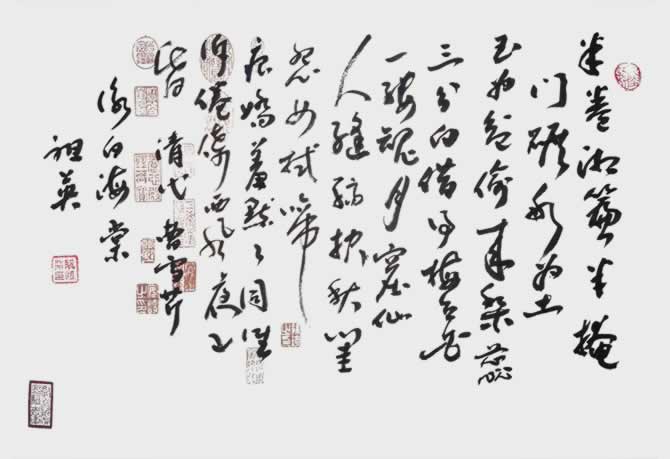 半卷湘簾半掩
门碾冰为土
玉为盆偷来梨蕊
三分白借得梅花
一缕魂月窟仙
人缝缟袂秋闺
怨女拭啼
痕娇羞默々同谁
诉倦倚西风夜已
昏 清代曹雪芹
咏白海棠
祖英